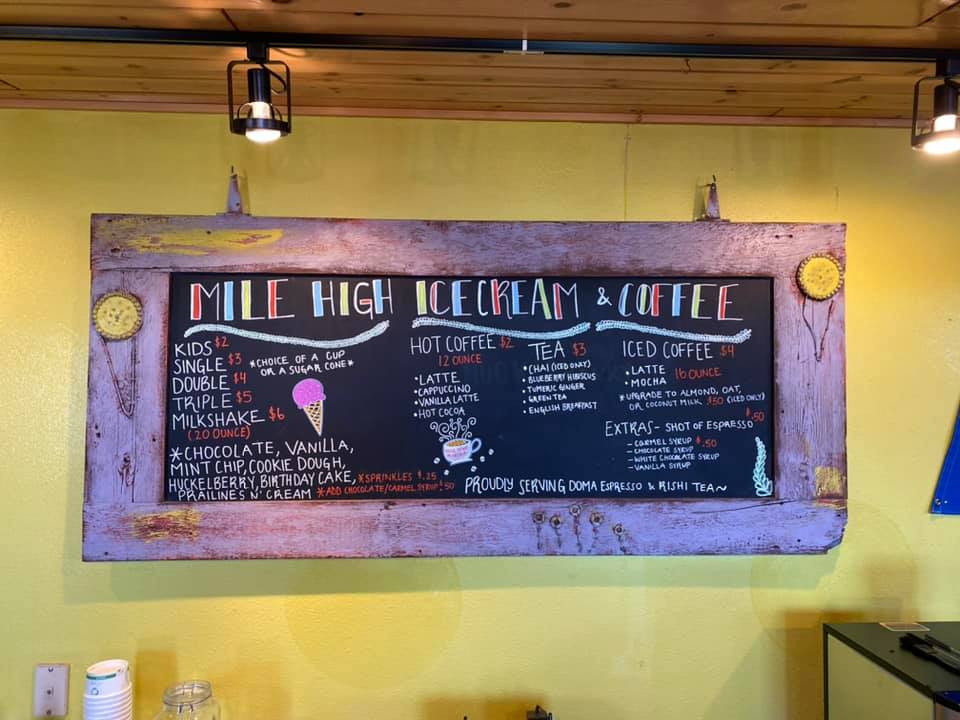 MILE HIGH ICECREAM & COFFEE
KIDS $2
SINGLE $3
DOUBLE $4
TRIPLE $5
MILKSHAKE $6
(20 OUNCE)
*CHOICE OF A CUP
OR A SUGAR CONE*
*CHOCOLATE, VANILLA,
MINT CHIP, COOKIE DOUGH,
HUCKELBERRY, BIRTHDAY CAKE, *SPRINKLES $.25
PRAILINES N' CREAM *ADD CHOCOLATE/CARMEL SYRUP $.50
HOT COFFEE $2
12 OUNCE
•LATTE
•CAPPUCCINO
•VANILLA LATTE
•HOT COCOA
TEA $3
•CHAI (ICED ONLY)
•BLUEBERRY HIBISCUS
•TUMERIC GINGER
•GREEN TEA
•ENGLISH BREAKFAST
ICED COFFEE $4
•LATTE
•MOCHA 16 OUNCE
*UPGRADE TO ALMOND, OAT,
OR COCONUT MILK $.50 (ICED ONLY)
EXTRAS - SHOT OF ESPRESSO $.50
- CARMEL SYRUP $.50
- CHOCOLATE SYRUP
- WHITE CHOCOLATE SYRUP
- VANILLA SYRUP
PROUDLY SERVING DOMA ESPRESSO & RISHI TEA~